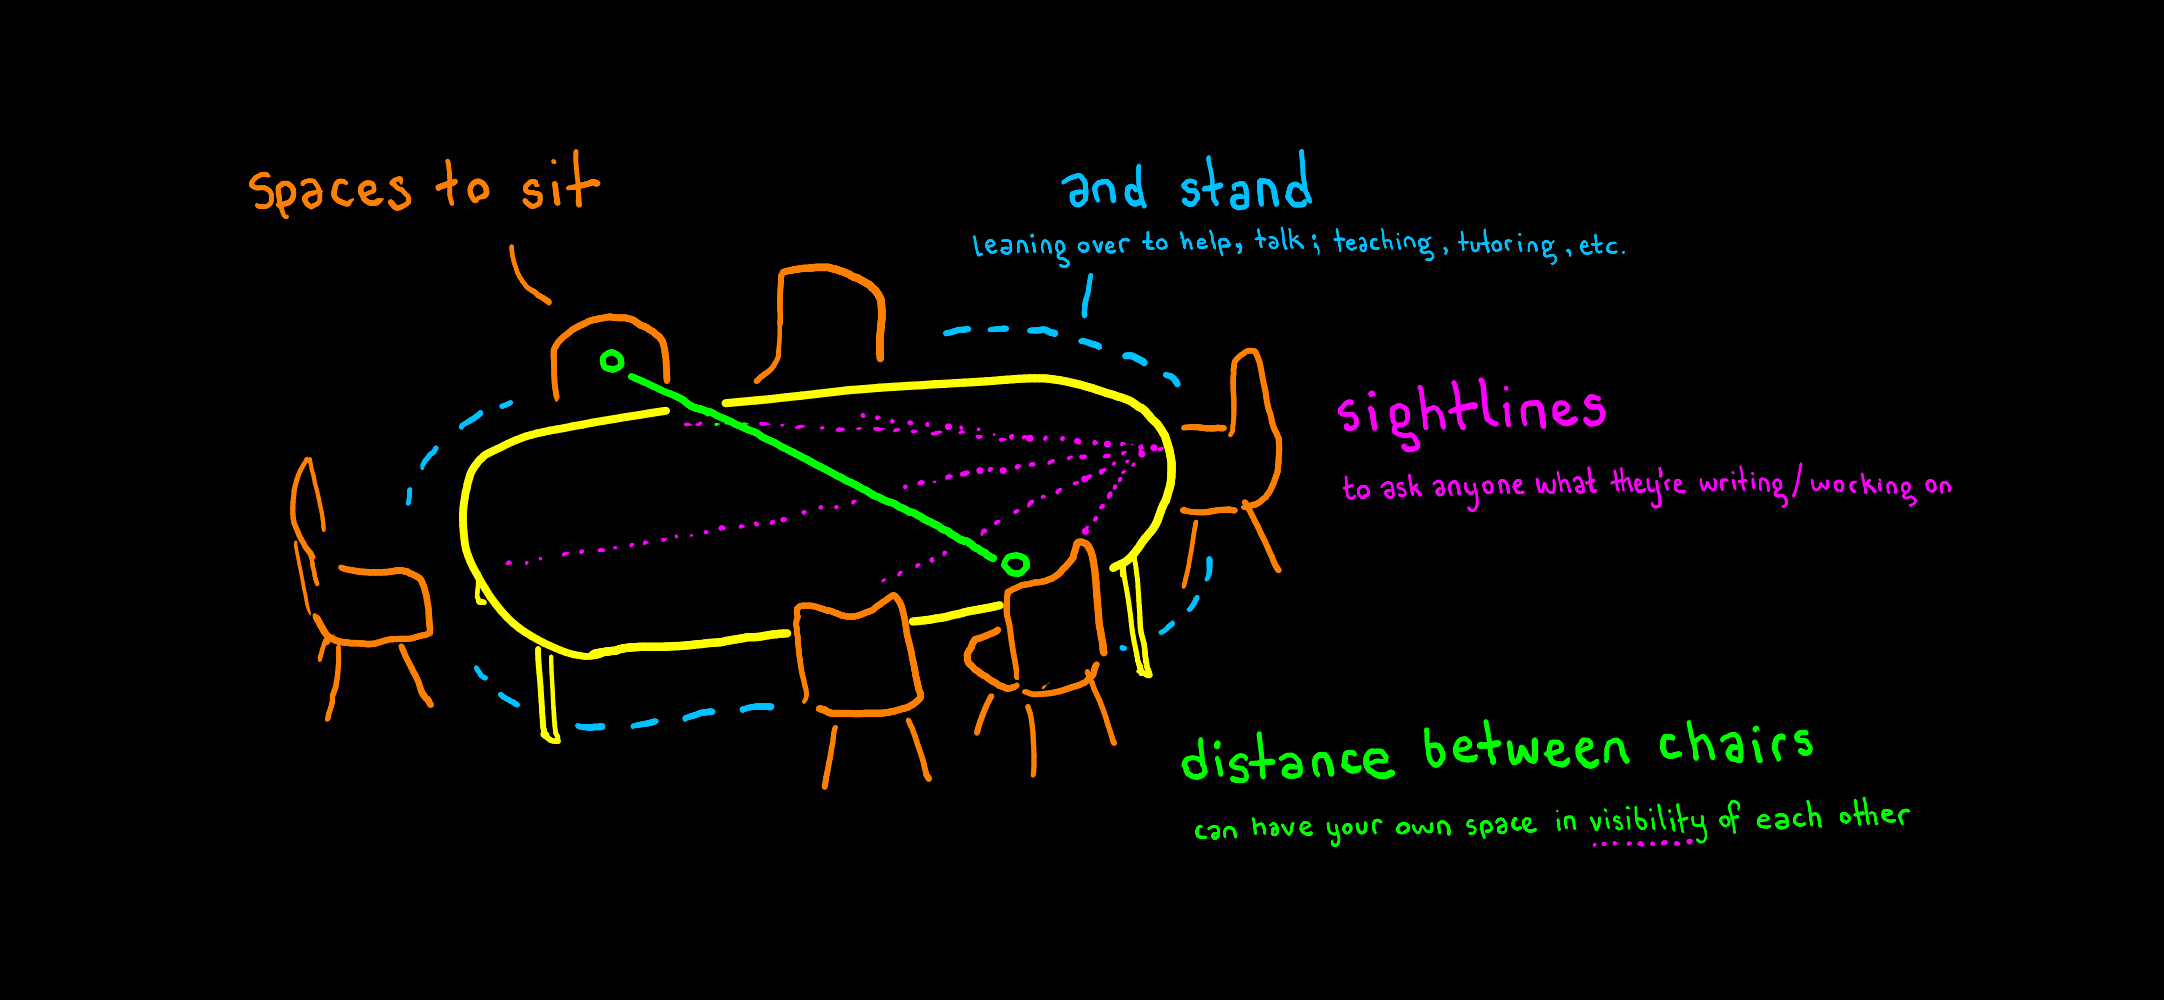 spaces to sit
and stand
leaning over to help, talk; teaching, tutoring, etc.
sightlines
to ask anyone what they're writing/working on
distance between chairs
can have your own space in visibility of each other